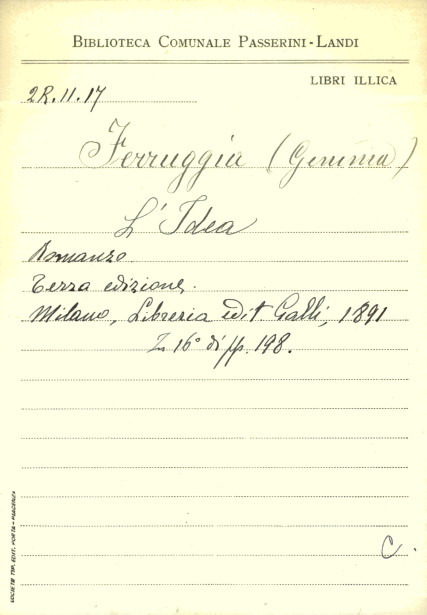 BIBLIOTECA COMUNALE PASSERINI-LANDI
LIBRI ILLICA
2R.11.17
Ferruggia (Gemma)
L'Idea
Romanzo
Terza edizione.
Milano, Libreria edit Galli, 1891
In 16° di pp. 198.
C.
SOCIETÀ TIP. EDIT. PORTA - PIACENZA